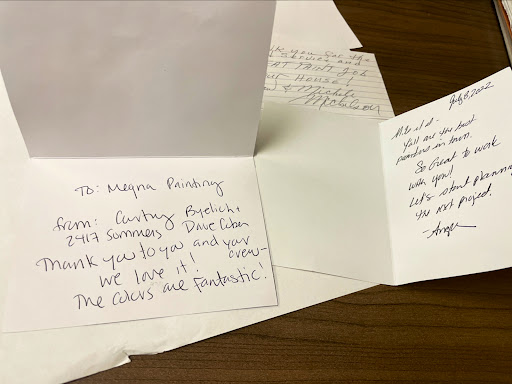 To: Megna Painting
from: Courtney Byelich +
2417 Sommers Dave Cohen
Thank you to you and your
crew -
we love it!
The colors are fantastic!
you for the
service and
PAINT Job
House!
& Michele
July 8, 2022
Y'all are the best
painters in town.
So Great to work
with you!
Let's start planning
the next project.